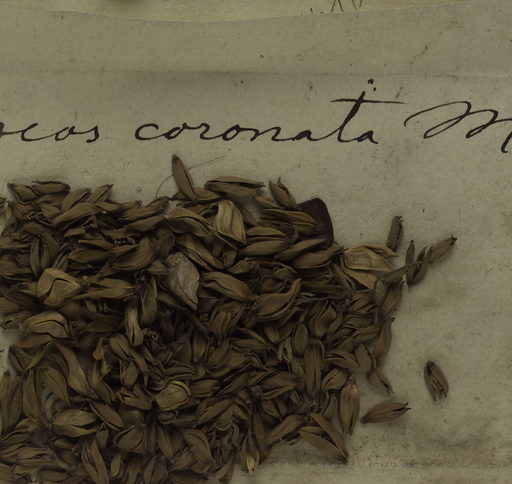 ocos coronata M